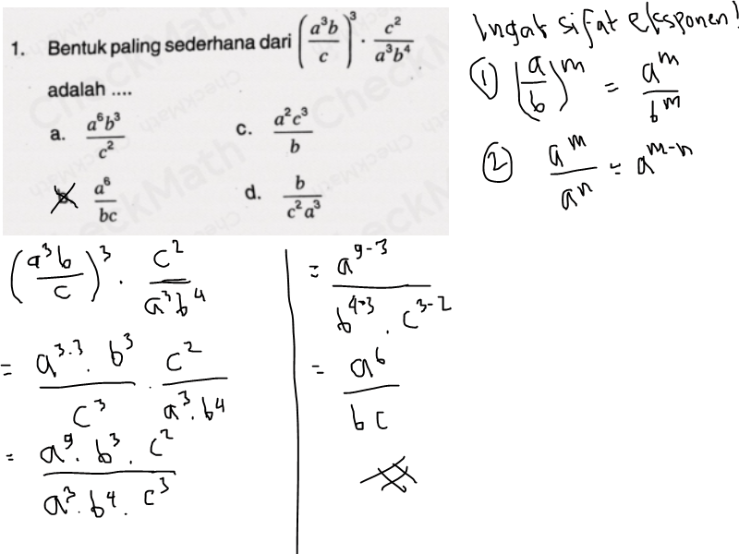 1. Bentuk paling sederhana dari (a³b/c)³ · c²/a³b⁴
adalah ....
a. a⁶b³/c²
c. a²c³/b
b. a⁶/bc
d. b/c²a³
CheckMath
Ingat sifat eksponen!
① (a/b)^m = a^m/b^m
② a^m/a^n = a^(m-n)
(a³b/c)³ · c²/a³b⁴
= a^(3.3) . b³/c³ . c²/a³.b⁴
= a⁹. b³ . c²/a³. b⁴. c³
= a^(9-3)/b^(4-3) . c^(3-2)
= a⁶/bc